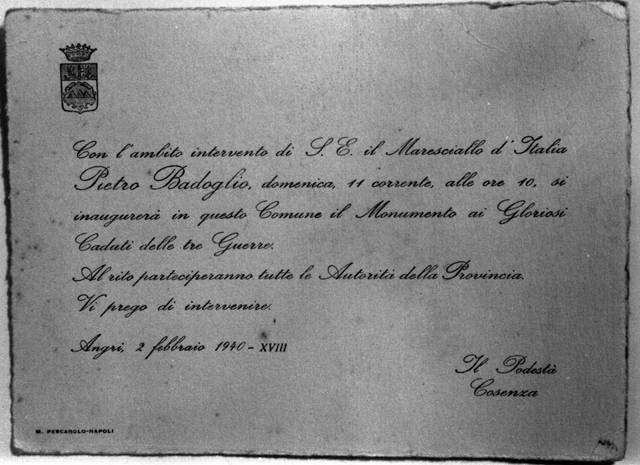 Con l'ambito intervento di S. E. il Maresciallo d'Italia
Pietro Badoglio, domenica, 11 corrente, alle ore 10, si
inaugurerà in questo Comune il Monumento ai Gloriosi
Caduti delle tre Guerre.
Al rito parteciperanno tutte le Autorità della Provincia.
Vi prego di intervenire.
Angri, 2 febbraio 1940 - XVIII
Il Podestà
Cosenza
M. PESCAROLO-NAPOLI